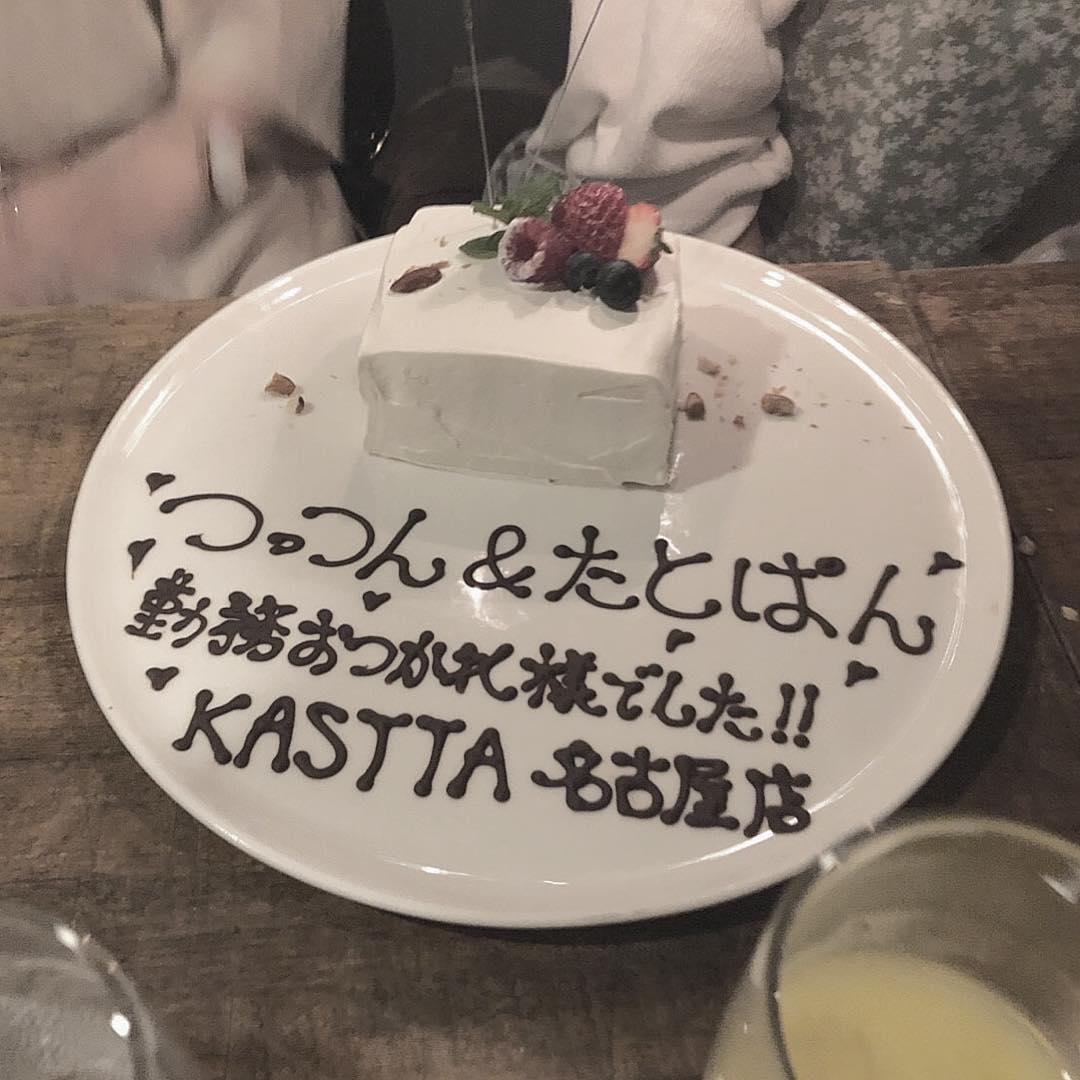 つっつん&たとぱん
勤務おつかれ様でした!!
KASTTA 名古屋店